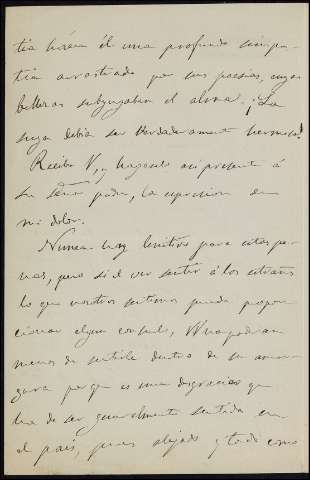 tia hácia él una profunda simpa-
tia arrastrado por sus poesias, cuyas
bellezas subyugaban el alma. ¡La
suya debia ser verdaderamente hermosa!
Reciba V, y hagasela asi presente á
su Señor padre, la espresion de
mi dolor.
Nunca hay lenitivo para estas pe-
nas, pero si el ver sentir á los estraños
lo que nosotros sentimos puede propor-
cionar algun consuelo, V no podrá
menos de sentirle dentro de su amar-
gura porque es una desgracia que
ha de ser generalmente sentida en
el pais, pues alejado y todo como